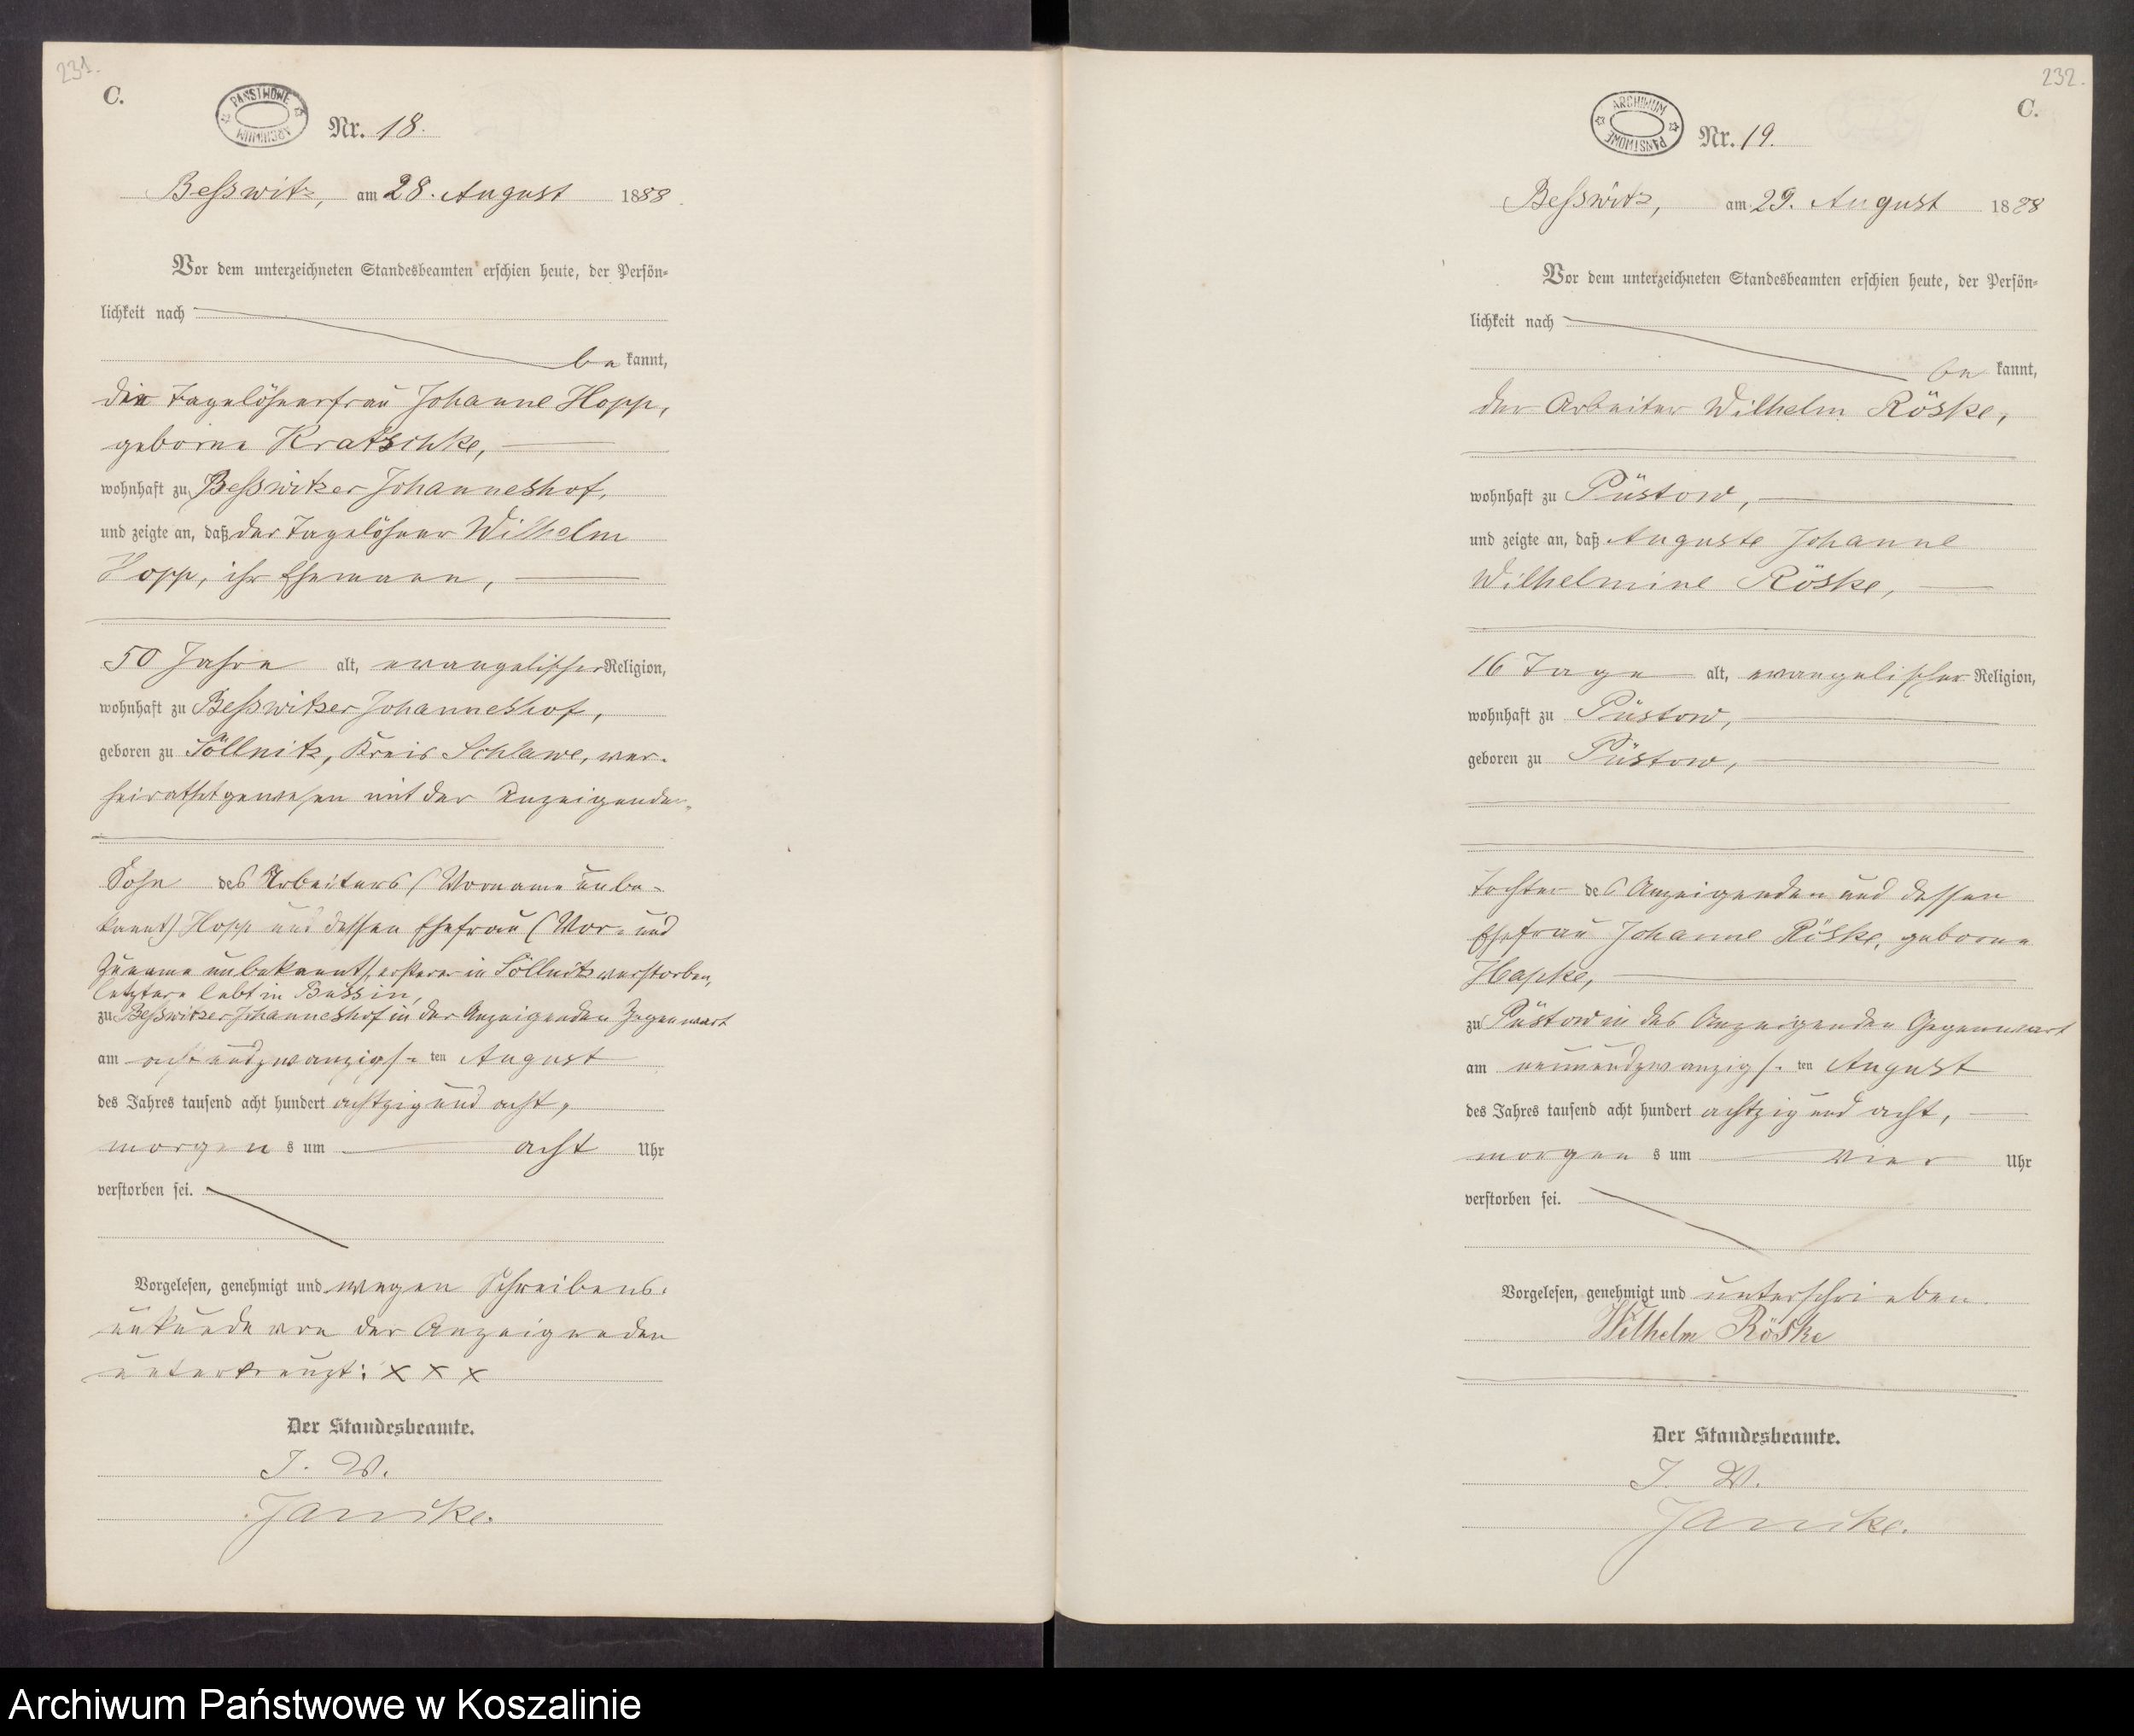 231.
C.
PAŃSTWOWE ARCHIWUM
Nr. 18.
Beßwitz, am 28. August 1888.
Vor dem unterzeichneten Standesbeamten erschien heute, der Persön-
lichkeit nach
be kannt,
die Tagelöhnerfrau Johanne Hopp,
geborne Kratschke,
wohnhaft zu Beßwitzer Johanneshof,
und zeigte an, daß der Tagelöhner Wilhelm
Hopp, ihr Ehemann,
50 Jahre alt, evangelischer Religion,
wohnhaft zu Beßwitzer Johanneshof,
geboren zu Söllnitz, Kreis Schlawe, ver-
heirathet gewesen mit der Anzeigenden,
Sohn des Arbeiters (Vorname unbe-
kannt) Hopp und dessen Ehefrau (Vor- und
Zuname unbekannt), ersterer in Söllnitz verstorben,
letztere lebt in Bussin,
zu Beßwitzer Johanneshof in der Anzeigenden Gegenwart
am acht und zwanzigs- ten August
des Jahres tausend acht hundert achtzig und acht,
morgen s um acht Uhr
verstorben sei.
Vorgelesen, genehmigt und wegen Schreibens-
unkunde von der Anzeigenden
unterkreuzt: x x x
Der Standesbeamte.
J. V.
Janike.
232.
C.
ARCHIWUM PAŃSTWOWE
Nr. 19.
Beßwitz, am 29. August 1888
Vor dem unterzeichneten Standesbeamten erschien heute, der Persön-
lichkeit nach
be kannt,
der Arbeiter Wilhelm Röske,
wohnhaft zu Püstow,
und zeigte an, daß Auguste Johanne
Wilhelmine Röske,
16 Tage alt, evangelischer Religion,
wohnhaft zu Püstow,
geboren zu Püstow,
Tochter des Anzeigenden und dessen
Ehefrau Johanne Röske, geborne
Hapke,
zu Püstow in des Anzeigenden Gegenwart
am neunundzwanzigs- ten August
des Jahres tausend acht hundert achtzig und acht,
morgen s um vier Uhr
verstorben sei.
Vorgelesen, genehmigt und unterschrieben.
Wilhelm Röske
Der Standesbeamte.
J. V.
Janike.
Archiwum Państwowe w Koszalinie